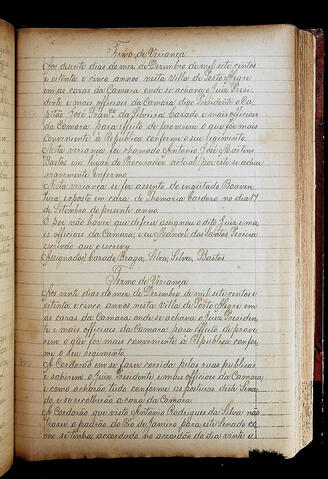 Termo de Veriança
Aos desoito dias do mez de Dezembro de mil sete centos
e oitenta e cinco annos nesta Villa de Porto Alegre
em as casas da Camara onde se achava o Juiz Presi-
dente e mais officiaes da Camara digo Presidente o Ca-
pitão José Franco da Silveira Casado e mais officiaes
da Camara para effeito de proverem o que for mais
conveniente a Republica conforme o seu regimento.
Nesta veriança foi chamado Antonio José Martins
Bastos em lugar do Procurador actual por este se achar
gravemente enfermo.
Nesta veriança se fez assento do engeitado Boaven-
tura exposto em casa de Thomasia Cardoso no dia 17
de Setembro do presente anno.
E por não haver que deferir asignou o dito Juiz e ma-
is officiaes da Camara, eu Manoel dos Santos Pereira
escrivão que o escrevy.
Asignados, Casado, Braga, Silva, Silva, Bastos.
Termo de Veriança
Aos vinte dias do mez de Dezembro de mil sete centos
e oitenta e cinco annos nesta Villa de Porto Alegre em
as casas da Camara onde se achava o Juiz Presiden-
te e mais officiaes da Camara para effeito de prove-
rem o que for mais conveniente à Republica confor-
me o seu regimento.
A Cordarão em se fazer corridas pelas ruas publicas
e sahirem o Juiz Presidente e mais officiaes da Camara,
e como acharão tudo conforme as posturas deste Sena-
do, e se recolherão a casa da Camara.
A Cordarão que visto Antonio Rodrigues da Silva não
trazer o padrão do Rio de Janeiro para este Senado co-
mo se tinha acordado no acordão do dia vinte e